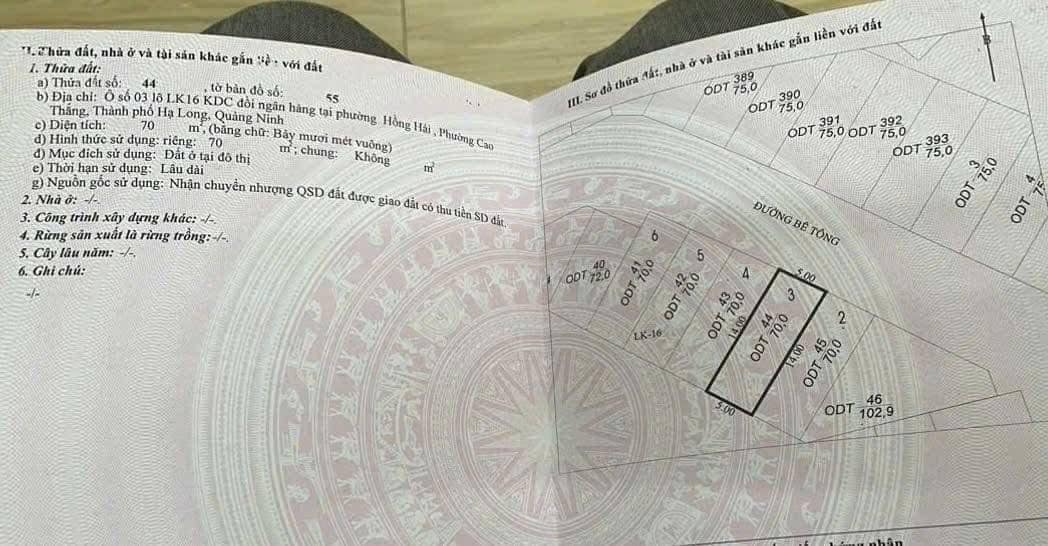 II. Thửa đất, nhà ở và tài sản khác gắn liền với đất
1. Thửa đất:
a) Thửa đất số: 44 , tờ bản đồ số: 55
b) Địa chỉ: Ô số 03 lô LK16 KDC đồi ngân hàng tại phường Hồng Hải , Phường Cao
Thắng, Thành phố Hạ Long, Quảng Ninh
c) Diện tích: 70 m², (bằng chữ: Bảy mươi mét vuông)
d) Hình thức sử dụng: riêng: 70 m²; chung: Không m²
đ) Mục đích sử dụng: Đất ở tại đô thị
e) Thời hạn sử dụng: Lâu dài
g) Nguồn gốc sử dụng: Nhận chuyển nhượng QSD đất được giao đất có thu tiền SD đất.
2. Nhà ở: -/-.
3. Công trình xây dựng khác: -/-.
4. Rừng sản xuất là rừng trồng: -/-.
5. Cây lâu năm: -/-.
6. Ghi chú:
-/-
III. Sơ đồ thửa đất, nhà ở và tài sản khác gắn liền với đất
B
ODT 389 75,0
ODT 390 75,0
ODT 391 75,0
ODT 392 75,0
ODT 393 75,0
ODT 3 75,0
ODT 4 75
ĐƯỜNG BÊ TÔNG
ODT 40 72,0
6
ODT 41 70,0
5
ODT 42 70,0
4
ODT 43 70,0
LK-16
5.00
3
14.00
ODT 44 70,0
14.00
5.00
2
ODT 45 70,0
ODT 46 102,9
nhận